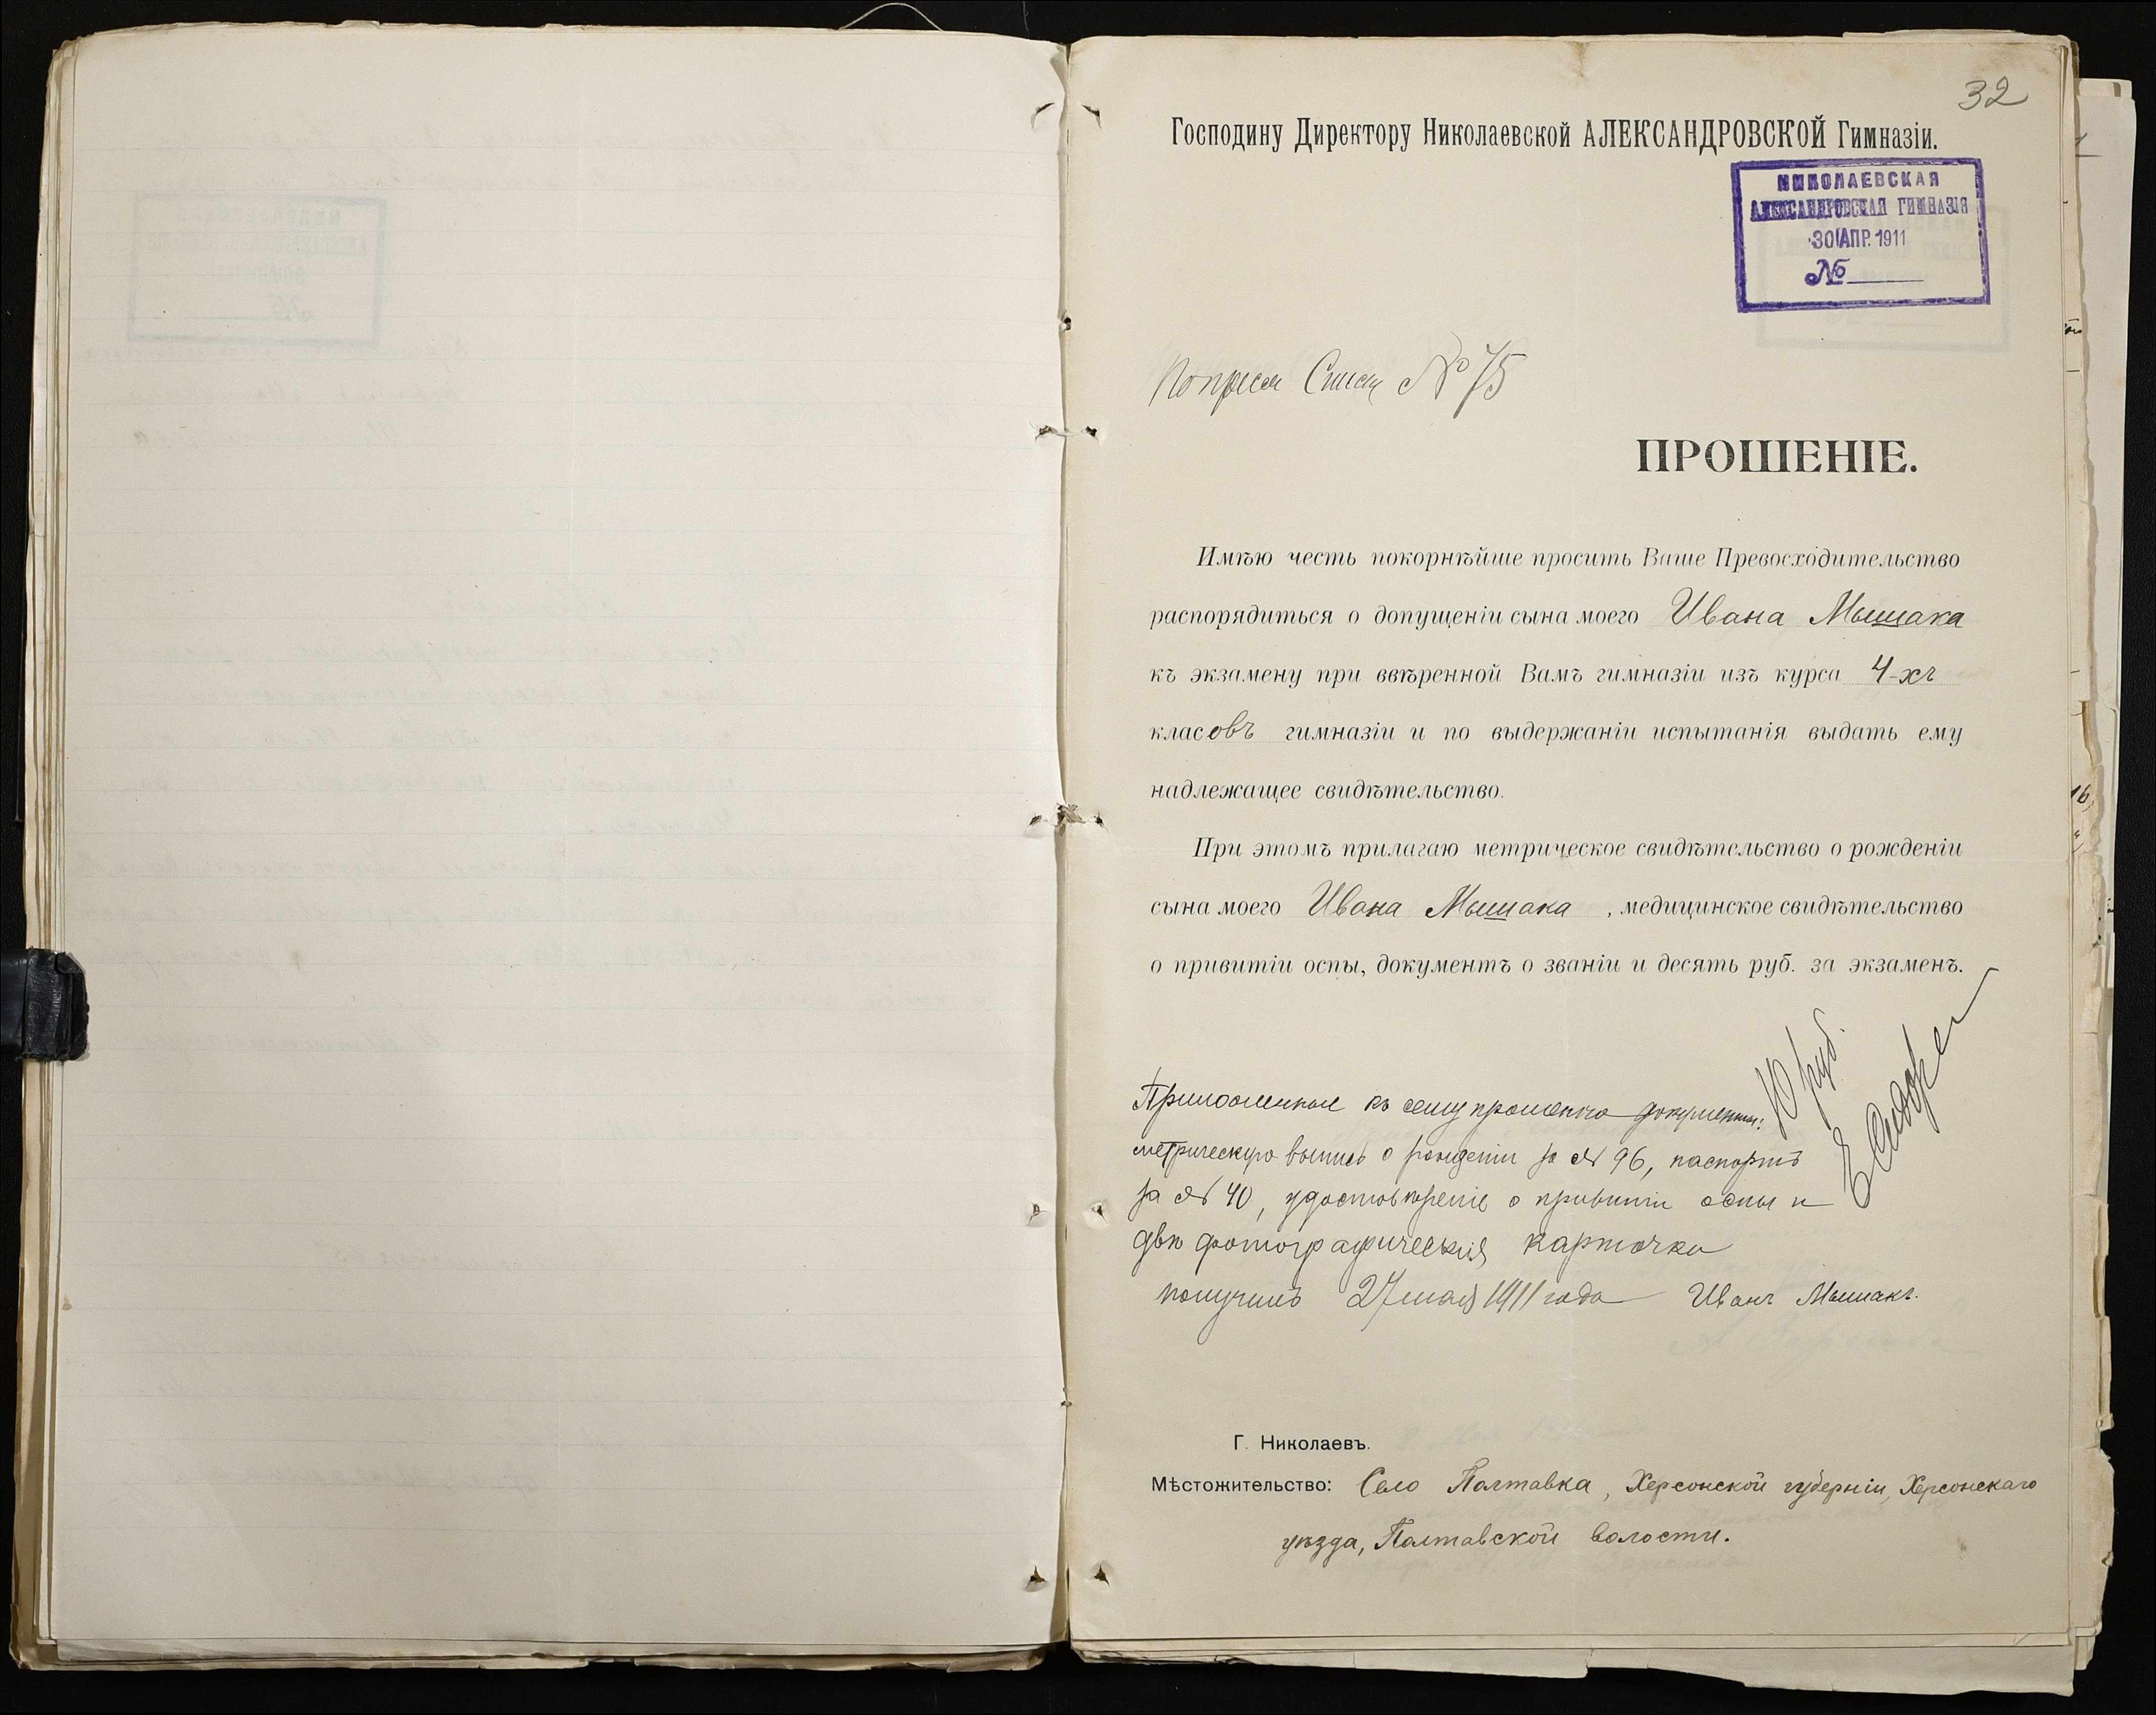 32
Господину Директору Николаевской АЛЕКСАНДРОВСКОЙ Гимназіи.
НИКОЛАЕВСКАЯ
АЛЕКСАНДРОВСКАЯ ГИМНАЗІЯ
30 АПР. 1911
№
№ 75
ПРОШЕНІЕ.
Имѣю честь покорнѣйше просить Ваше Превосходительство
распорядиться о допущеніи сына моего Ивана Мышака
къ экзамену при ввѣренной Вамъ гимназіи изъ курса 4-хъ
класовъ гимназіи и по выдержаніи испытанія выдать ему
надлежащее свидѣтельство.
При этомъ прилагаю метрическое свидѣтельство о рожденіи
сына моего Ивана Мышака , медицинское свидѣтельство
о привитіи оспы, документъ о званіи и десять руб. за экзаменъ.
10 руб.
Приложенные къ сему прошенію документы:
метрическую выпись о рожденіи за № 96, паспортъ
за № 40, удостовѣреніе о привитіи оспы и
двѣ фотографическія карточки
получилъ 27 мая 1911 года Иванъ Мышакъ.
Г. Николаевъ.
Мѣстожительство: Село Полтавка, Херсонской губерніи, Херсонскаго
уѣзда, Полтавской волости.